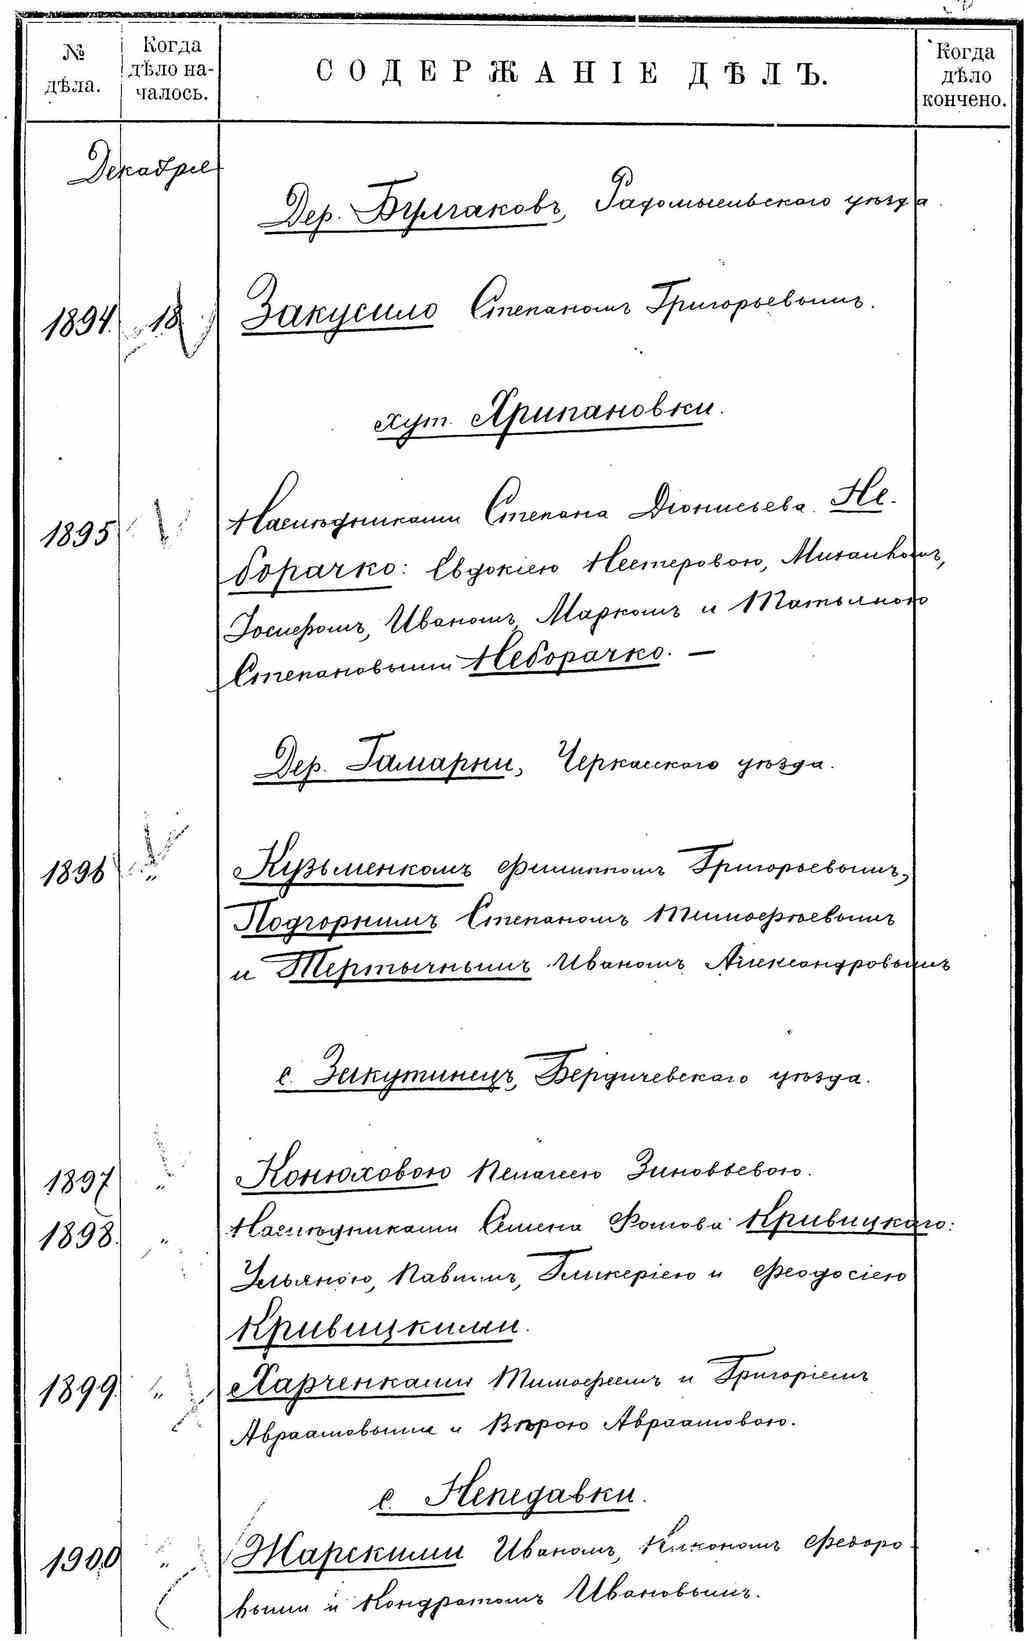 № дѣла.
Когда дѣло на-чалось.
СОДЕРЖАНІЕ ДѢЛЪ.
Когда дѣло кончено.
Декабря
Дер. Булгаковъ, Радомысльского уѣзда.
1894. 18 Закусило Степаномъ Григорьевымъ.
хут. Хрипановки.
1895 " Наслѣдниками Степана Діонисьева Не-
борачко: Евдокіею Нестеровою, Михаиломъ,
Іосифомъ, Иваномъ, Маркомъ и Татьяною
Степановыми Неборачко. —
Дер. Гамарни, Черкасского уѣзда.
1896 " Кузьменкомъ Филиппомъ Григорьевымъ,
Подгорнимъ Степаномъ Тимофѣевымъ
и Тертычнымъ Иваномъ Александровымъ
с. Закутинецъ, Бердичевскаго уѣзда.
1897 " Конюховою Пелагеею Зиновьевою.
1898. " Наслѣдниками Семена Фомова Кривицкаго:
Ульяною, Павломъ, Гликеріею и Феодосіею
Кривицкими.
1899. " Харченками Тимофеемъ и Григоріемъ
Авраамовыми и Вѣрою Авраамовою.
с. Непедавки.
1900 " Жарскими Иваномъ, Федоро-
выми и Кондратомъ Ивановымъ.